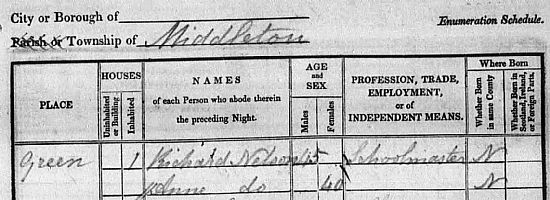 City or Borough of
Enumeration Schedule.
Parish or Township of Middleton
PLACE
HOUSES
Uninhabited or Building
Inhabited
NAMES
of each Person who abode therein
the preceding Night.
AGE
and
SEX
Males
Females
PROFESSION, TRADE,
EMPLOYMENT,
or of
INDEPENDENT MEANS.
Where Born
Whether Born in same County
Whether Born in Scotland, Ireland, or Foreign Parts.
Green 1 Richard Nelson 45 Schoolmaster N
Anne do 40 N